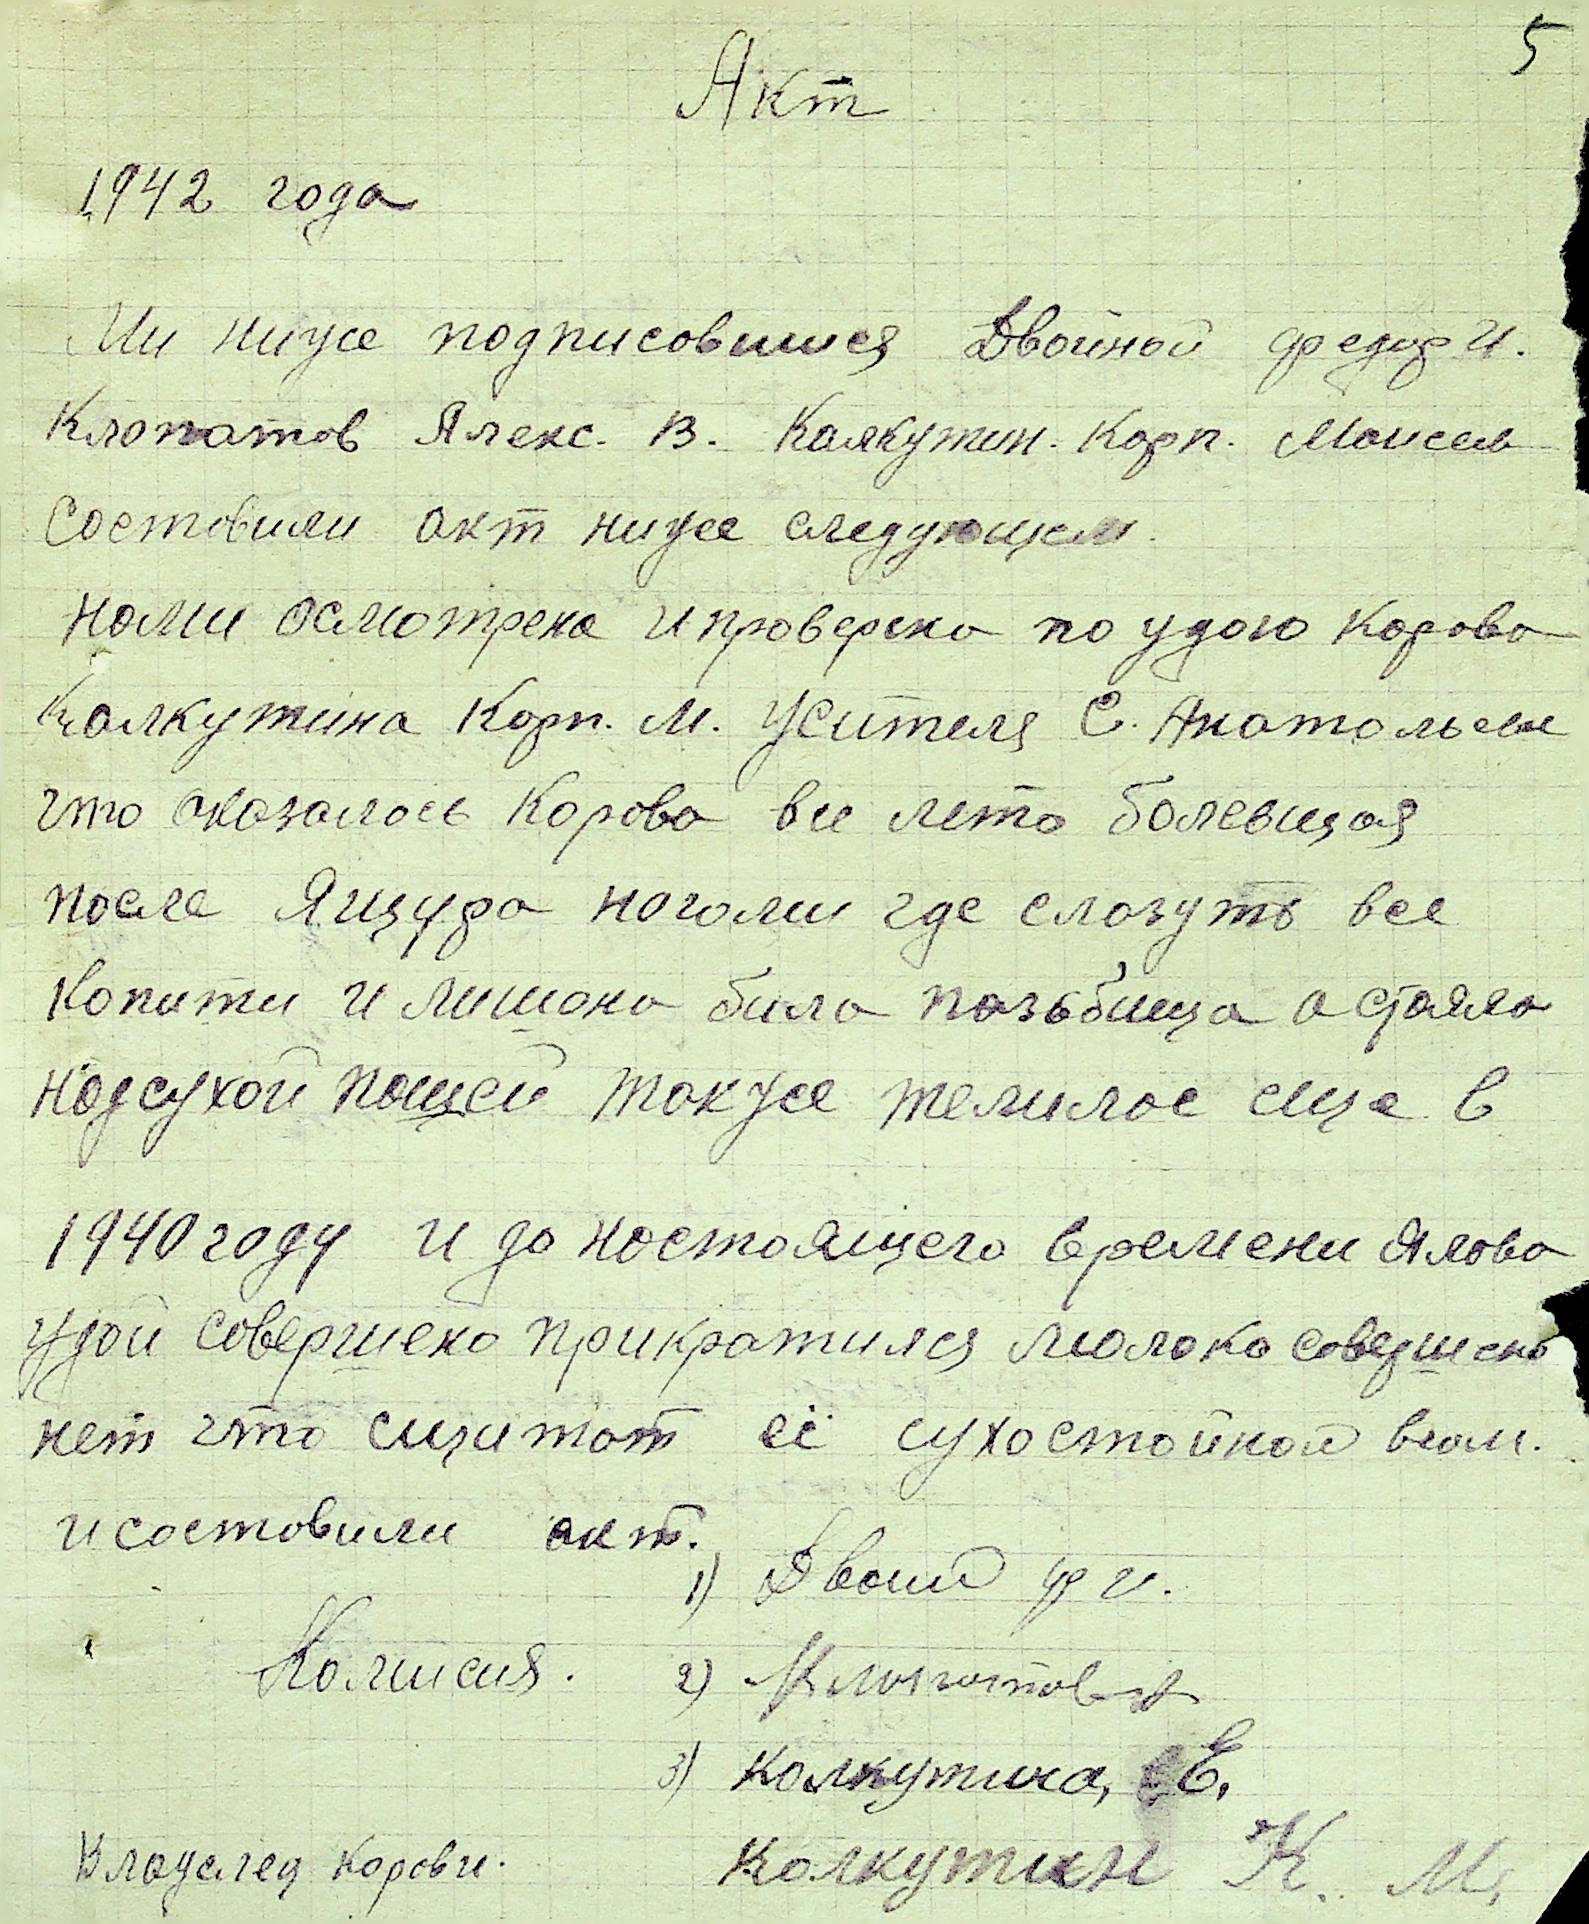 5
Акт
1942 года
Ми ниже подписовшися Двойной Федор И.
Клопатов Алекс. В. Калкутин. Карп. Моисеев
Состовили акт ниже следующем.
Нами осмотрена и проверена по удою Корова
Калкутина Карп. М. Жителя С. Анатольевк
что оказалось Корова вее лето болевщая
после Ящура ногами где слозуть все
Копити и лишона била а стояла
Надсухой пощей также телилас еще в
1940 году и до настоящего времени Ялова
Удой совершено прикратился молока совершено
нет что сщитат её сухостойной
и состовили акт.
1) Двойной Ф И.
Комисия. 2) Клопатов
3) Калкутина, Е.
Владелец Корови. Калкутин К. М.